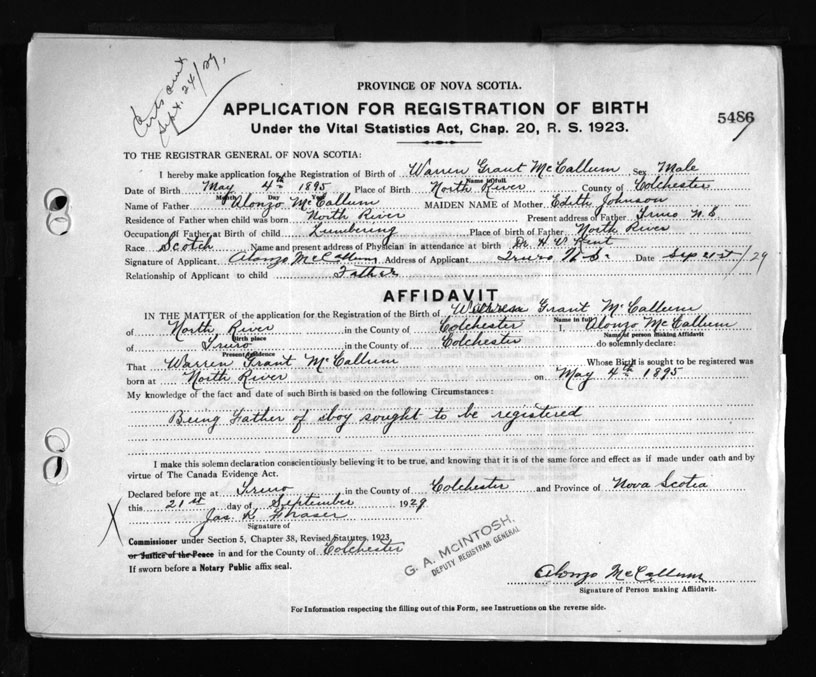 Certs out.
Sept. 24/29.
PROVINCE OF NOVA SCOTIA.
APPLICATION FOR REGISTRATION OF BIRTH
Under the Vital Statistics Act, Chap. 20, R. S. 1923.
5486
TO THE REGISTRAR GENERAL OF NOVA SCOTIA:
I hereby make application for the Registration of Birth of Warren Grant McCallum Sex Male
Name in full
Date of Birth May 4th 1895 Place of Birth North River County of Colchester
Month Day Year
Name of Father Alonzo McCallum MAIDEN NAME of Mother Edith Johnson
Residence of Father when child was born North River Present address of Father Truro N.S.
Occupation of Father at Birth of child Lumbering Place of birth of Father North River
Race Scotch Name and present address of Physician in attendance at birth Dr. H. V. Kent
Signature of Applicant Alonzo McCallum Address of Applicant Truro N.S. Date Sep 21st/29
Relationship of Applicant to child Father
AFFIDAVIT
IN THE MATTER of the application for the Registration of the Birth of Warren Grant McCallum
Name in full
of North River in the County of Colchester I, Alonzo McCallum
Birth place Name of person making Affidavit
of Truro in the County of Colchester do solemnly declare:
Present residence
That Warren Grant McCallum Whose Birth is sought to be registered was
born at North River on May 4th 1895
My knowledge of the fact and date of such Birth is based on the following Circumstances:
Being Father of boy sought to be registered
I make this solemn declaration conscientiously believing it to be true, and knowing that it is of the same force and effect as if made under oath and by
virtue of The Canada Evidence Act.
Declared before me at Truro in the County of Colchester and Province of Nova Scotia
this 21st day of September 1929.
Jas K Fraser
Signature of
X
Commissioner under Section 5, Chapter 38, Revised Statutes, 1923,
or Justice of the Peace in and for the County of Colchester
If sworn before a Notary Public affix seal.
G. A. McINTOSH,
DEPUTY REGISTRAR GENERAL
Alonzo McCallum
Signature of Person making Affidavit.
For Information respecting the filling out of this Form, see Instructions on the reverse side.